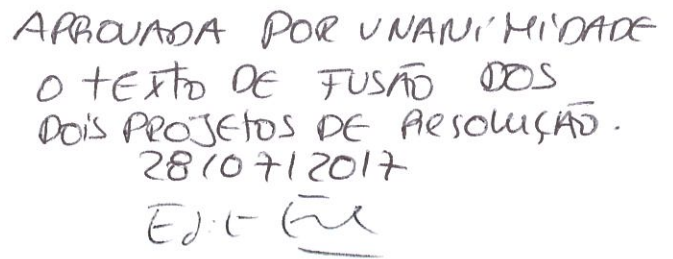 APROVADA POR UNANIMIDADE
O TEXTO DE FUSÃO DOS
DOIS PROJETOS DE RESOLUÇÃO.
28/07/2017